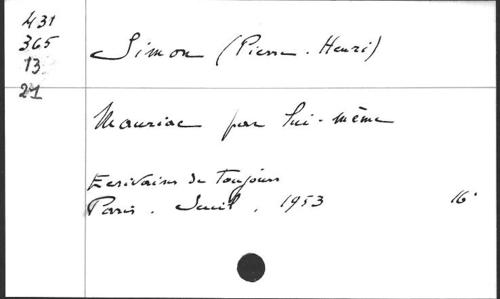 431
365
13
21
Simon (Pierre-Henri)
Mauriac par lui-même
Ecrivains de Toujours
Paris. Seuil, 1953 16°